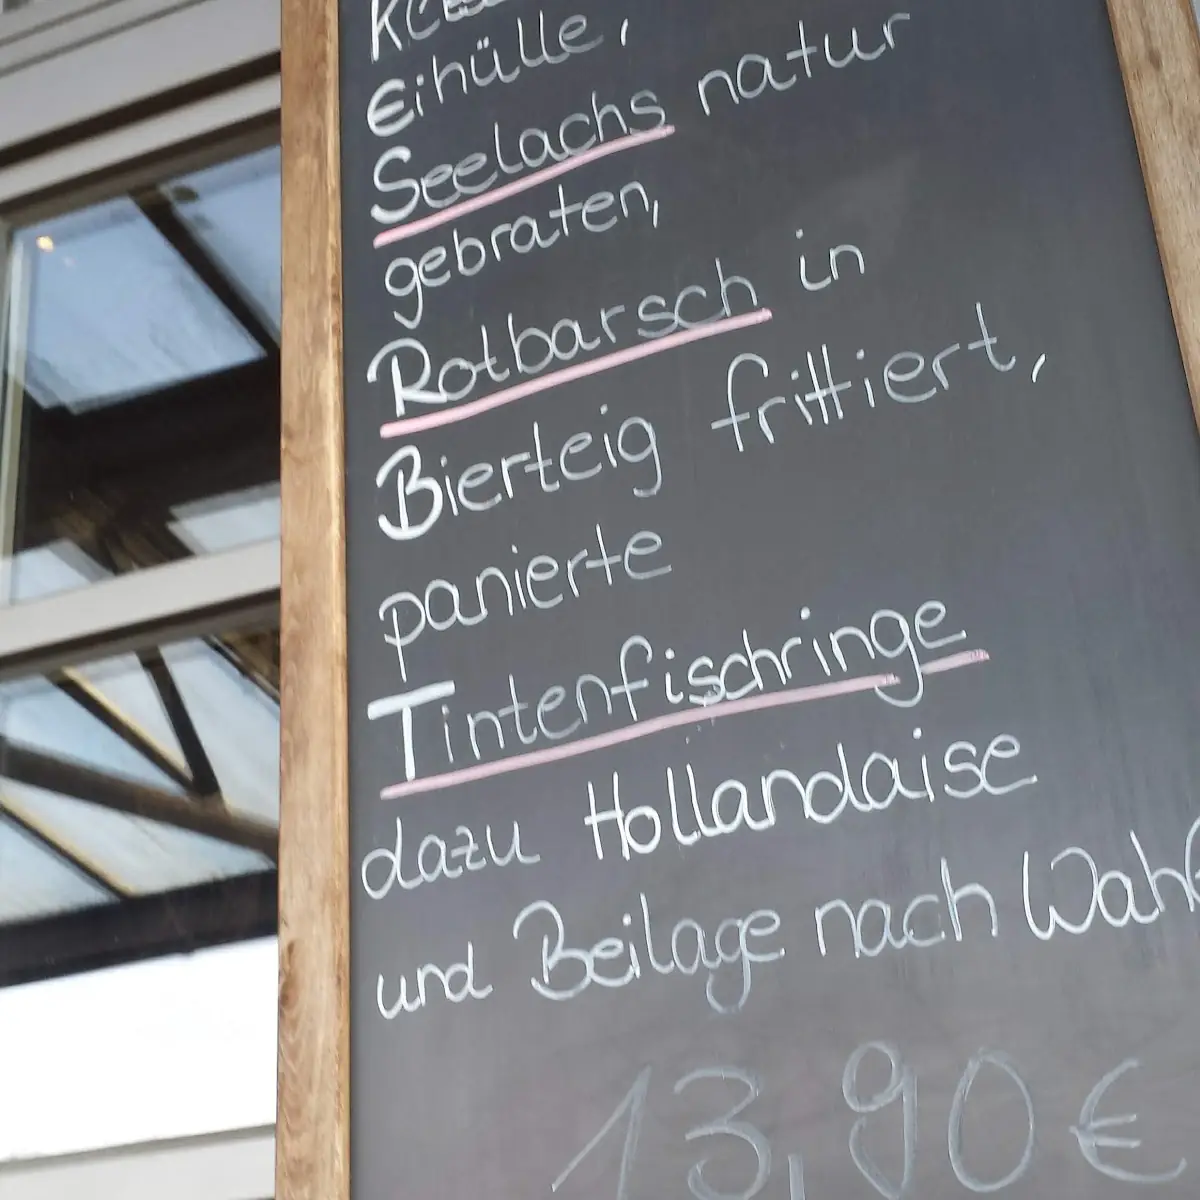 Eihülle,
Seelachs natur
gebraten,
Rotbarsch in
Bierteig frittiert,
panierte
Tintenfischringe
dazu Hollandaise
und Beilage nach Wahl
13,90€